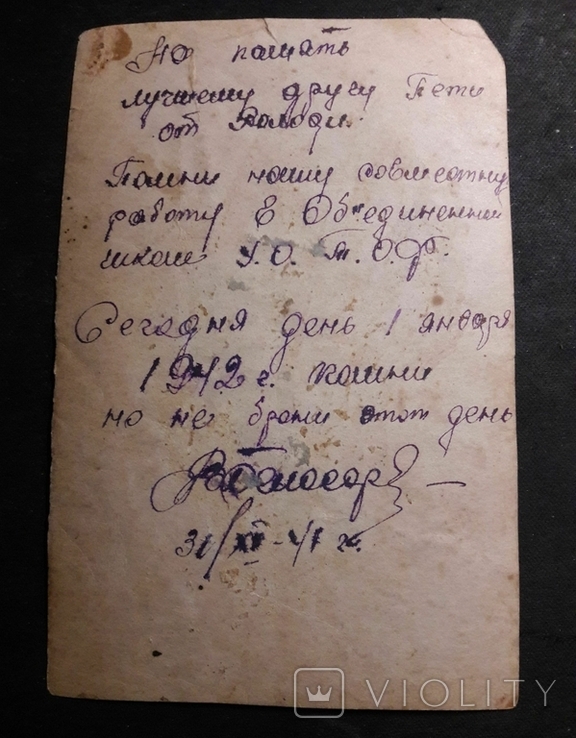 На память
лучшему другу Пети
от Володи.
Помни нашу совместную
работу в Объединенной
школе У.О. Т.О.Ф.
Сегодня день 1 января
1942 г. помни
но не брани этот день
31/XII-41 г.
VIOLITY